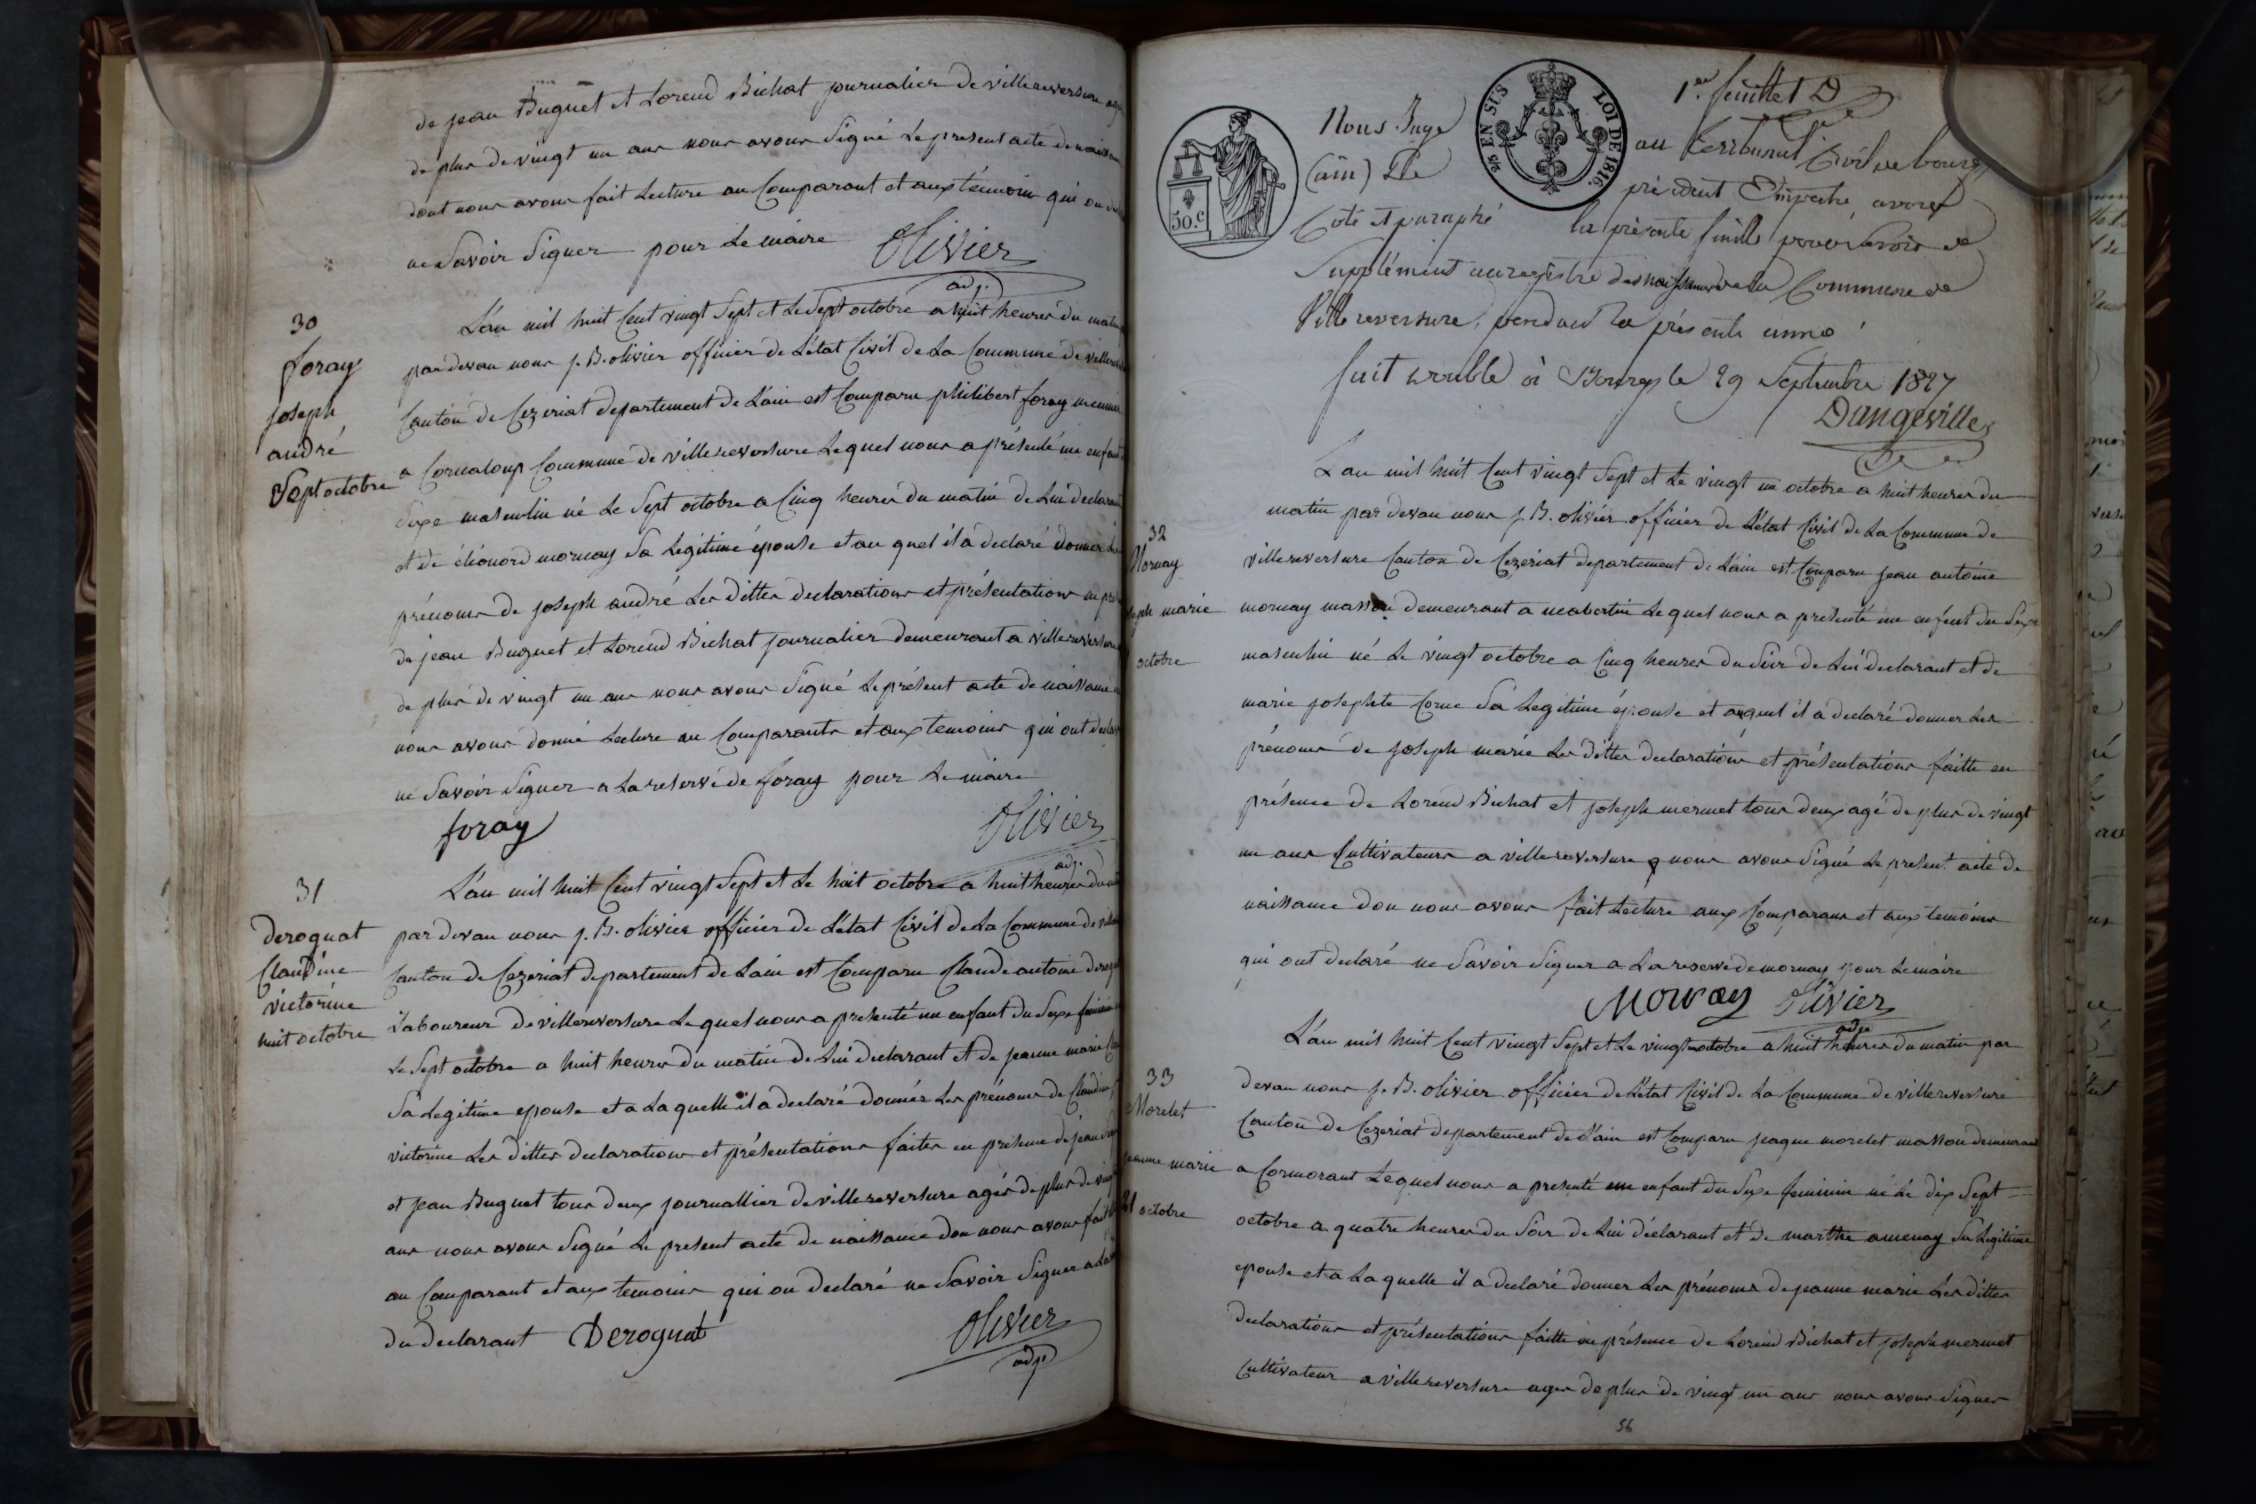 de jean Buguet et Lorend Bichat journalier de villereversure
de plus de vingt un ans nous avons Signé Le present acte de
dont nous avons fait Lecture au Comparant et aux témoin qui on
ne Savoir Signer pour Le maire Olivier
adj.
30
foray
joseph
andré
Sept octobre
L'an mil huit Cent vingt Sept et Le Sept octobre a huit heures du matin
par devan nous j. B. olivier officier de L'état Civil de La Commune de
Canton de Cezeriat departement de L'ain est Comparu philibert foray
a Cornaloup Commune de villereversure Lequel nous a présenté un enfant
Sexe masculin né Le Sept octobre a Cinq heures du matin de Lui declarant
et de éléonord mornay Sa Legitime épouse et au quel il a declaré donner
prénoms de joseph andré Les dittes declarations et présentations
de jean Buguet et Lorend Bichat journalier demeurant a villereversure
de plus de vingt un ans nous avons Signé Le présent acte de naissance
nous avons donné Lecture au Comparants et aux temoins qui ont
ne Savoir Signer a La reservé de foray pour Le maire
foray Olivier
adj.
31
deroguat
Claudine
victorine
huit octobre
L'an mil huit Cent vingt Sept et Le huit octobre a huit heures du
par devan nous j. B. olivier officier de L'état Civil de La Commune de
Canton de Cezeriat departement de Lain est Comparu Claude antoine
Laboureur de villereversure Lequel nous a presenté un enfant du Sexe
Le Sept octobre a huit heures du matin de Lui declarant et de jeanne marie
Sa Legitime epouse et a La quelle il a declaré donnér Les prénoms de Claudine
victorine Les dittes declarations et présentations faites en presence de jean
et jean Buguet tous deux journallier de villereversure agés de plus de
ans nous avons Signé Le present acte de naissance don nous avons fait
au Comparant et aux temoins qui on declaré ne Savoir Signer
du declarant Deroguat Olivier
adj.
1er feuillet D
30.c
EN SUS
LOI DE 1816.
Nous Juge au tribunal Civil de bourg
(ain) président Empeché, avons
Coté et paraphé la présente feuille pour servir de
Supplément au registre des naissances de la Commune de
Villereversure, pendant la présente année
fait double à Bourg le 29 Septembre 1827
Dangeville
32
Mornay
marie
octobre
L'an mil huit Cent vingt Sept et Le vingt un octobre a huit heures du
matin par devan nous j. B. olivier officier de L'état Civil de La Commune de
villereversure Canton de Cezeriat departement de L'ain est Comparu jean antoine
mornay masson demeurant a Lequel nous a présenté un enfent du Sexe
masculin né Le vingt octobre a Cinq heures du Soir de Lui declarant et de
marie josephte Corne Sa Legitime épouse et auquel il a declaré donner Les
prénoms de joseph marie Les dittes declarations et présentations faitte en
présence de Lorend Bichat et joseph mermet tous deux agé de plus de vingt
un ans Cultivateurs a villereversure nous avons Signé Le present acte de
naissance don nous avons fait Lecture aux Comparans et aux temoins
qui ont declaré ne Savoir Signer a La reserve de mornay pour Le maire
Mornay Olivier
adj.
33
Morelet
marie
21 octobre
L'an mil huit Cent vingt Sept et Le vingt octobre a huit heures du matin par
devan nous j. B. olivier officier de L'état Civil de La Commune de villereversure
Canton de Cezeriat departement de L'ain est Comparu jaque morelet masson demeurant
a Cormorant Lequel nous a presenté un enfant du Sexe feminin né Le dix Sept
octobre a quatre heures du Soir de Lui déclarant et de marthe amenay Sa Legitime
epouse et a La quelle il a declaré donner Les prénoms de jeanne marie Les dittes
declarations et présentations faitte en présence de Lorend Bichat et joseph mermet
Cultivateur a villereversure ages de plus de vingt un ans nous avons Signer
56